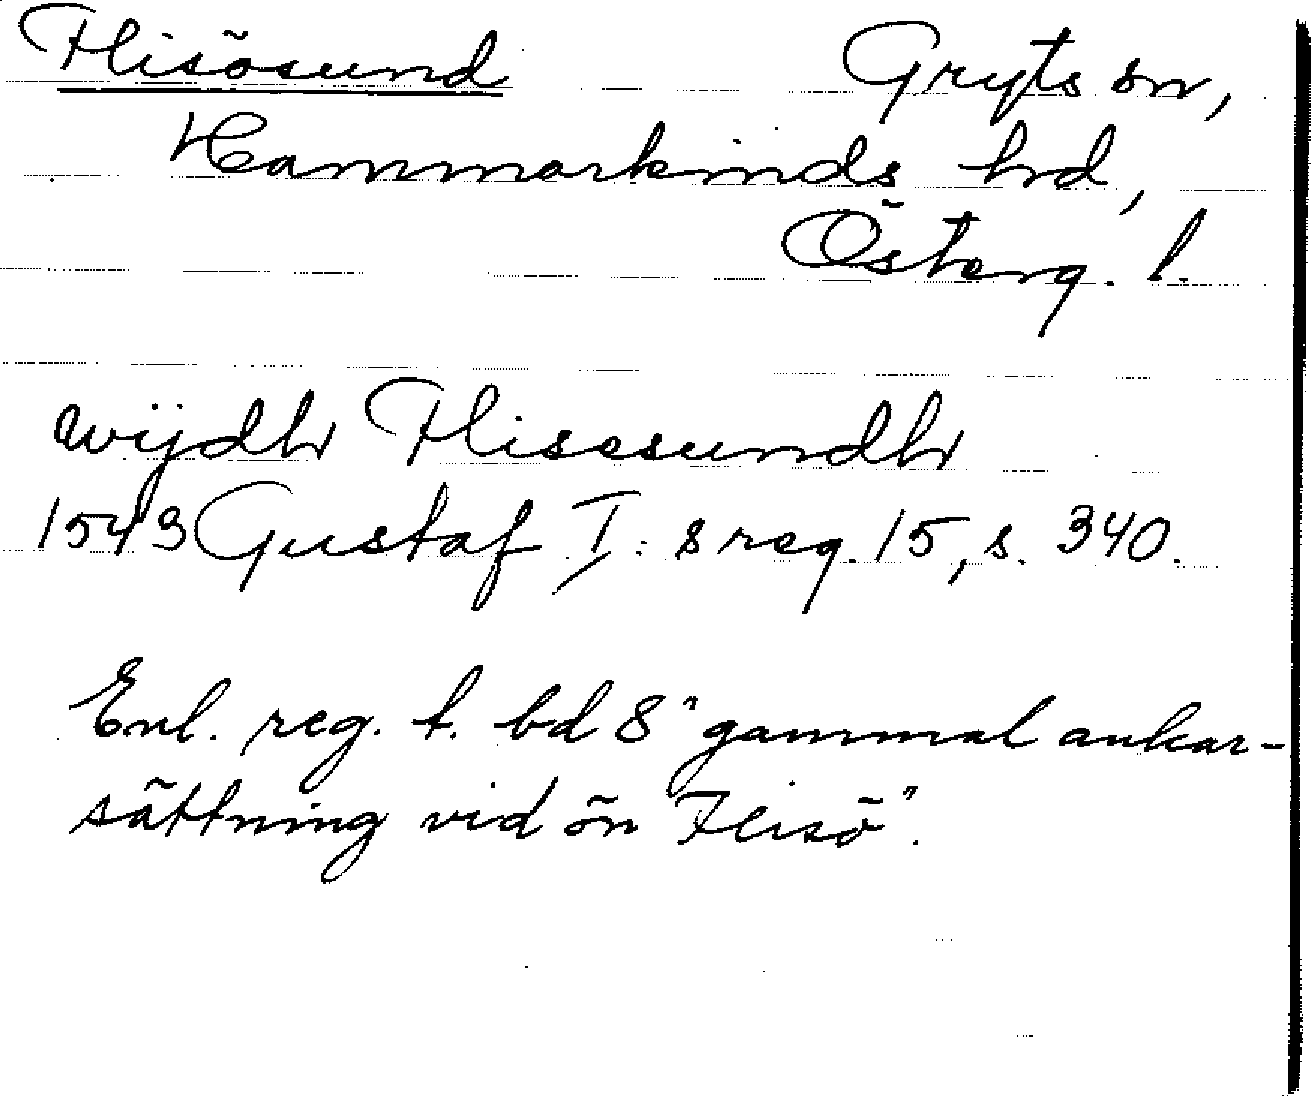 Flisösund Gryts sn,
Hammarkinds hd,
Österg. l.
wijdh Flisesundh
1543 Gustaf I:s reg. 15, s. 340.
Enl. reg. t. bd 8 "gammal ankar-
sättning vid ön Flisö".